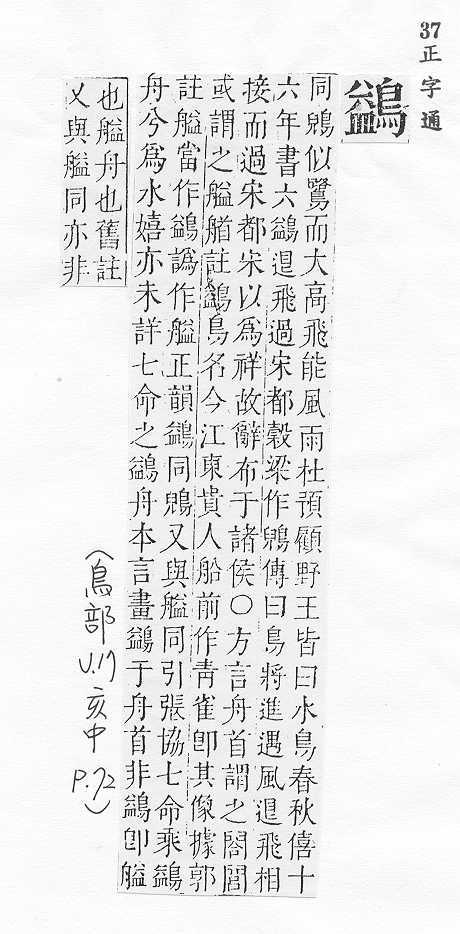 37
正字通
鷁
同鶂似鷖而大高飛能風雨杜預顧野王皆曰水鳥春秋僖十
六年書六鷁退飛過宋都穀梁作鶂傳曰鳥將進遇風退飛相
接而過宋都宋以為祥故辭布于諸侯○方言舟首謂之閤閭
或謂之艗艏註鷁鳥名今江東貴人船前作青雀卽其像據郭
註艗當作鷁譌作艗正韻鷁同鶂又與艗同引張協七命乘鷁
舟兮爲水嬉亦未詳七命之鷁舟本言畫鷁于舟首非鷁卽艗
也艗舟也舊註
乂與艗同亦非
(鳥部 V.17 亥中 P.72)